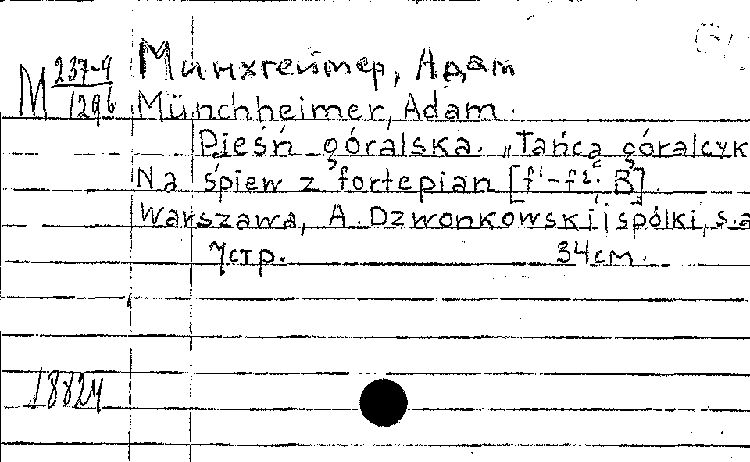 М 237-9/1296
Минхгеймер, Адам
Münchheimer, Adam.
Pieśń góralska. „Tańcą góralcyk
Na śpiew z fortepian [f¹-f²; B]
Warszawa, A. Dzwonkowski i spólki, s.a
7стр. 34 cm.
18824